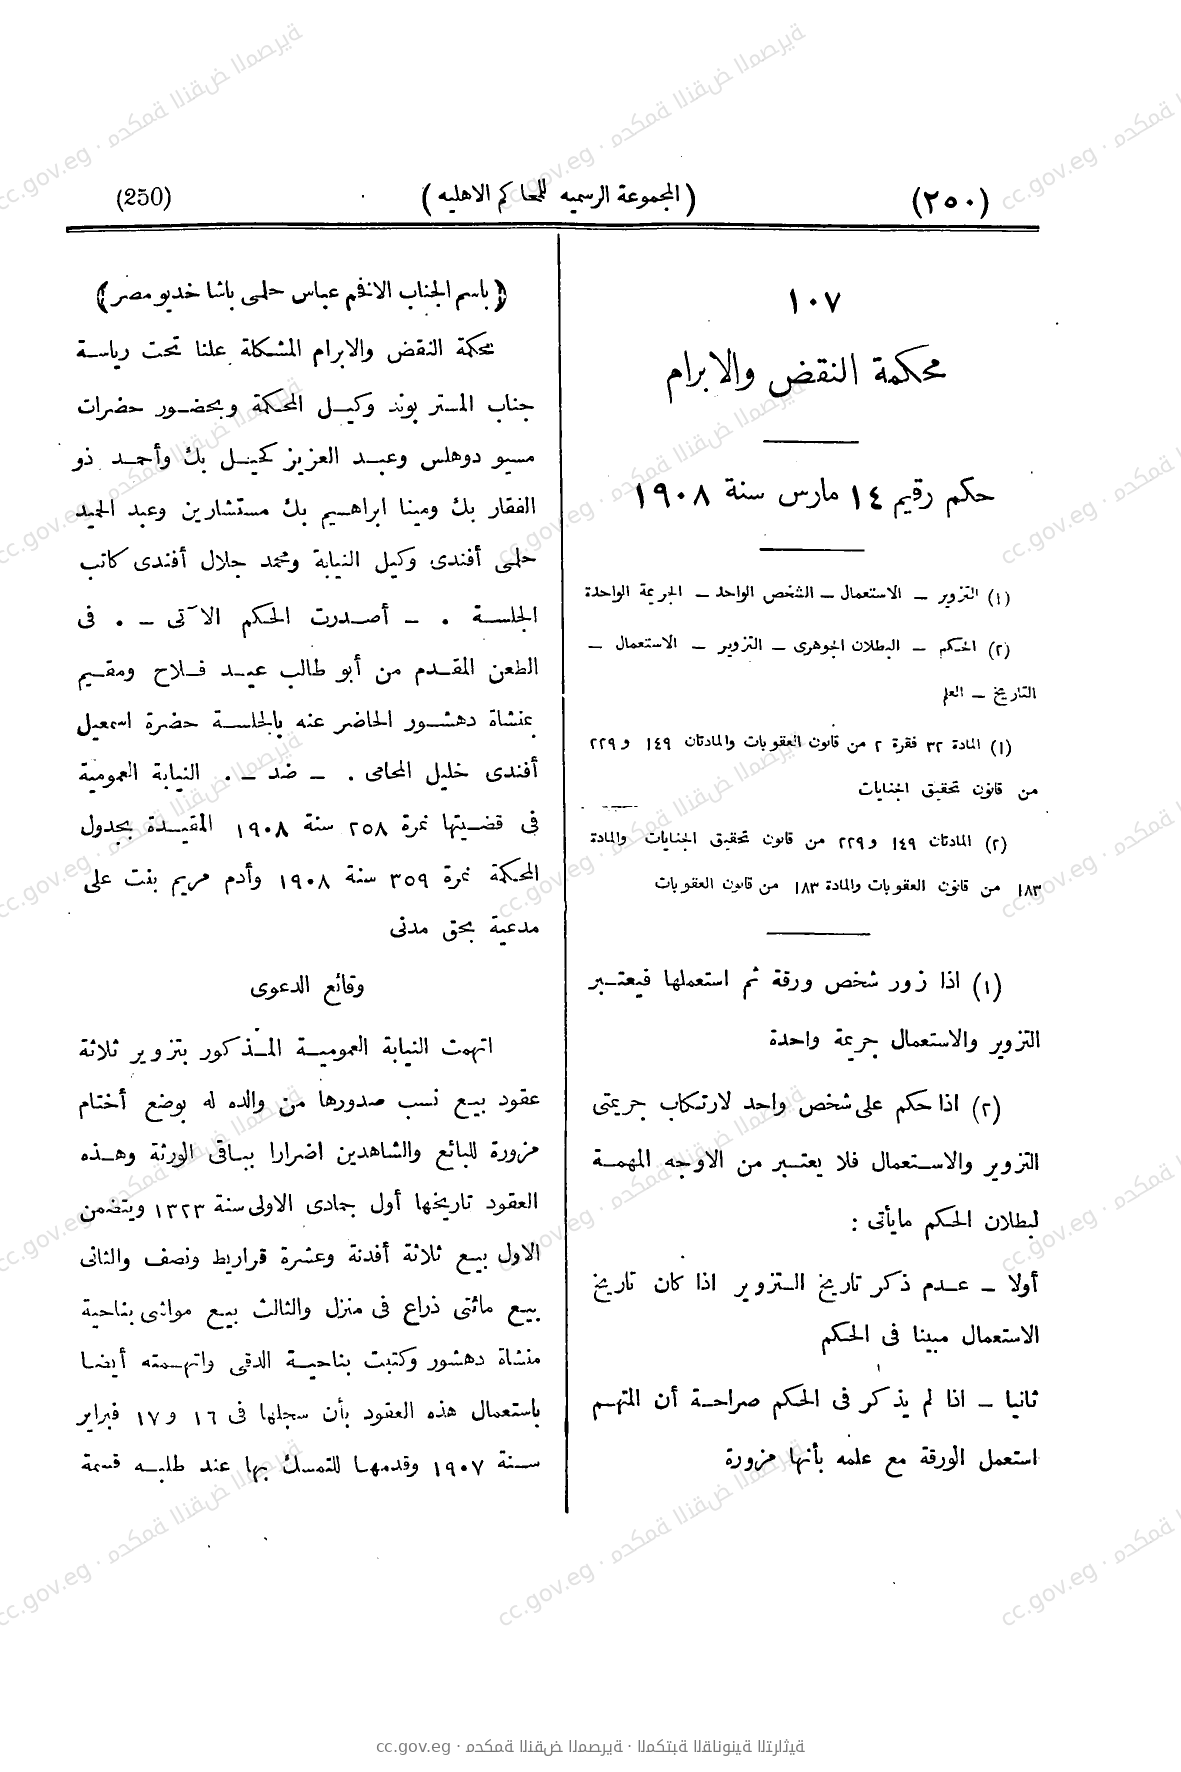 (٢٥٠)
(المجموعة الرسميه للمحاكم الاهليه)
(250)
١٠٧
محكمة النقض والابرام
حكم رقيم ١٤ مارس سنة ١٩٠٨
(١) التزوير – الاستعمال – الشخص الواحد – الجريمة الواحدة
(٢) الحكم – البطلان الجوهرى – التزوير – الاستعمال –
التاريخ – العلم
(١) المادة ٣٢ فقرة ٢ من قانون العقوبات والمادتان ١٤٩ و ٢٢٩
من قانون تحقيق الجنايات
(٢) المادتان ١٤٩ و٢٢٩ من قانون تحقيق الجنايات والمادة
١٨٣ من قانون العقوبات والمادة ١٨٣ من قانون العقوبات
(١) اذا زور شخص ورقة ثم استعملها فيعتبر
التزوير والاستعمال جريمة واحدة
(٢) اذا حكم على شخص واحد لارتكاب جريمتى
التزوير والاستعمال فلا يعتبر من الاوجه المهمة
لبطلان الحكم مايأتى :
أولا – عدم ذكر تاريخ التزوير اذا كان تاريخ
الاستعمال مبينا فى الحكم
ثانيا – اذا لم يذكر فى الحكم صراحة أن المتهم
استعمل الورقة مع علمه بأنها مزورة
(باسم الجناب الافخم عباس حلمى باشا خديو مصر)
محكمة النقض والابرام المشكلة علنا تحت رياسة
جناب المستر بوند وكيل المحكمة وبحضور حضرات
مسيو دوهلس وعبد العزيز كحيل بك وأحمد ذو
الفقار بك ومينا ابراهيم بك مستشارين وعبد الحميد
حلمى أفندى وكيل النيابة ومحمد جلال أفندى كاتب
الجلسة . – أصدرت الحكم الآتى – . فى
الطعن المقدم من أبو طالب عيد فلاح ومقيم
بمنشاة دهشور الحاضر عنه بالجلسة حضرة اسمعيل
أفندى خليل المحامى . – ضد – . النيابة العمومية
فى قضيتها نمرة ٢٥٨ سنة ١٩٠٨ المقيدة بجدول
المحكمة نمرة ٣٥٩ سنة ١٩٠٨ وأدم مريم بنت على
مدعية بحق مدنى
وقائع الدعوى
اتهمت النيابة العمومية المذكور بتزوير ثلاثة
عقود بيع نسب صدورها من والده له بوضع أختام
مزورة للبائع والشاهدين اضرارا بباقى الورثة وهذه
العقود تاريخها أول جمادى الاولى سنة ١٣٢٣ ويتضمن
الاول بيع ثلاثة أفدنة وعشرة قراريط ونصف والثانى
بيع مائتى ذراع فى منزل والثالث بيع مواشى بناحية
منشاة دهشور وكتبت بناحية الدقى واتهمته أيضا
باستعمال هذه العقود بأن سجلها فى ١٦ و ١٧ فبراير
سنة ١٩٠٧ وقدمها للتمسك بها عند طلبه قسمة
cc.gov.eg · محكمة النقض المصرية · المكتبة القانونية التراثية